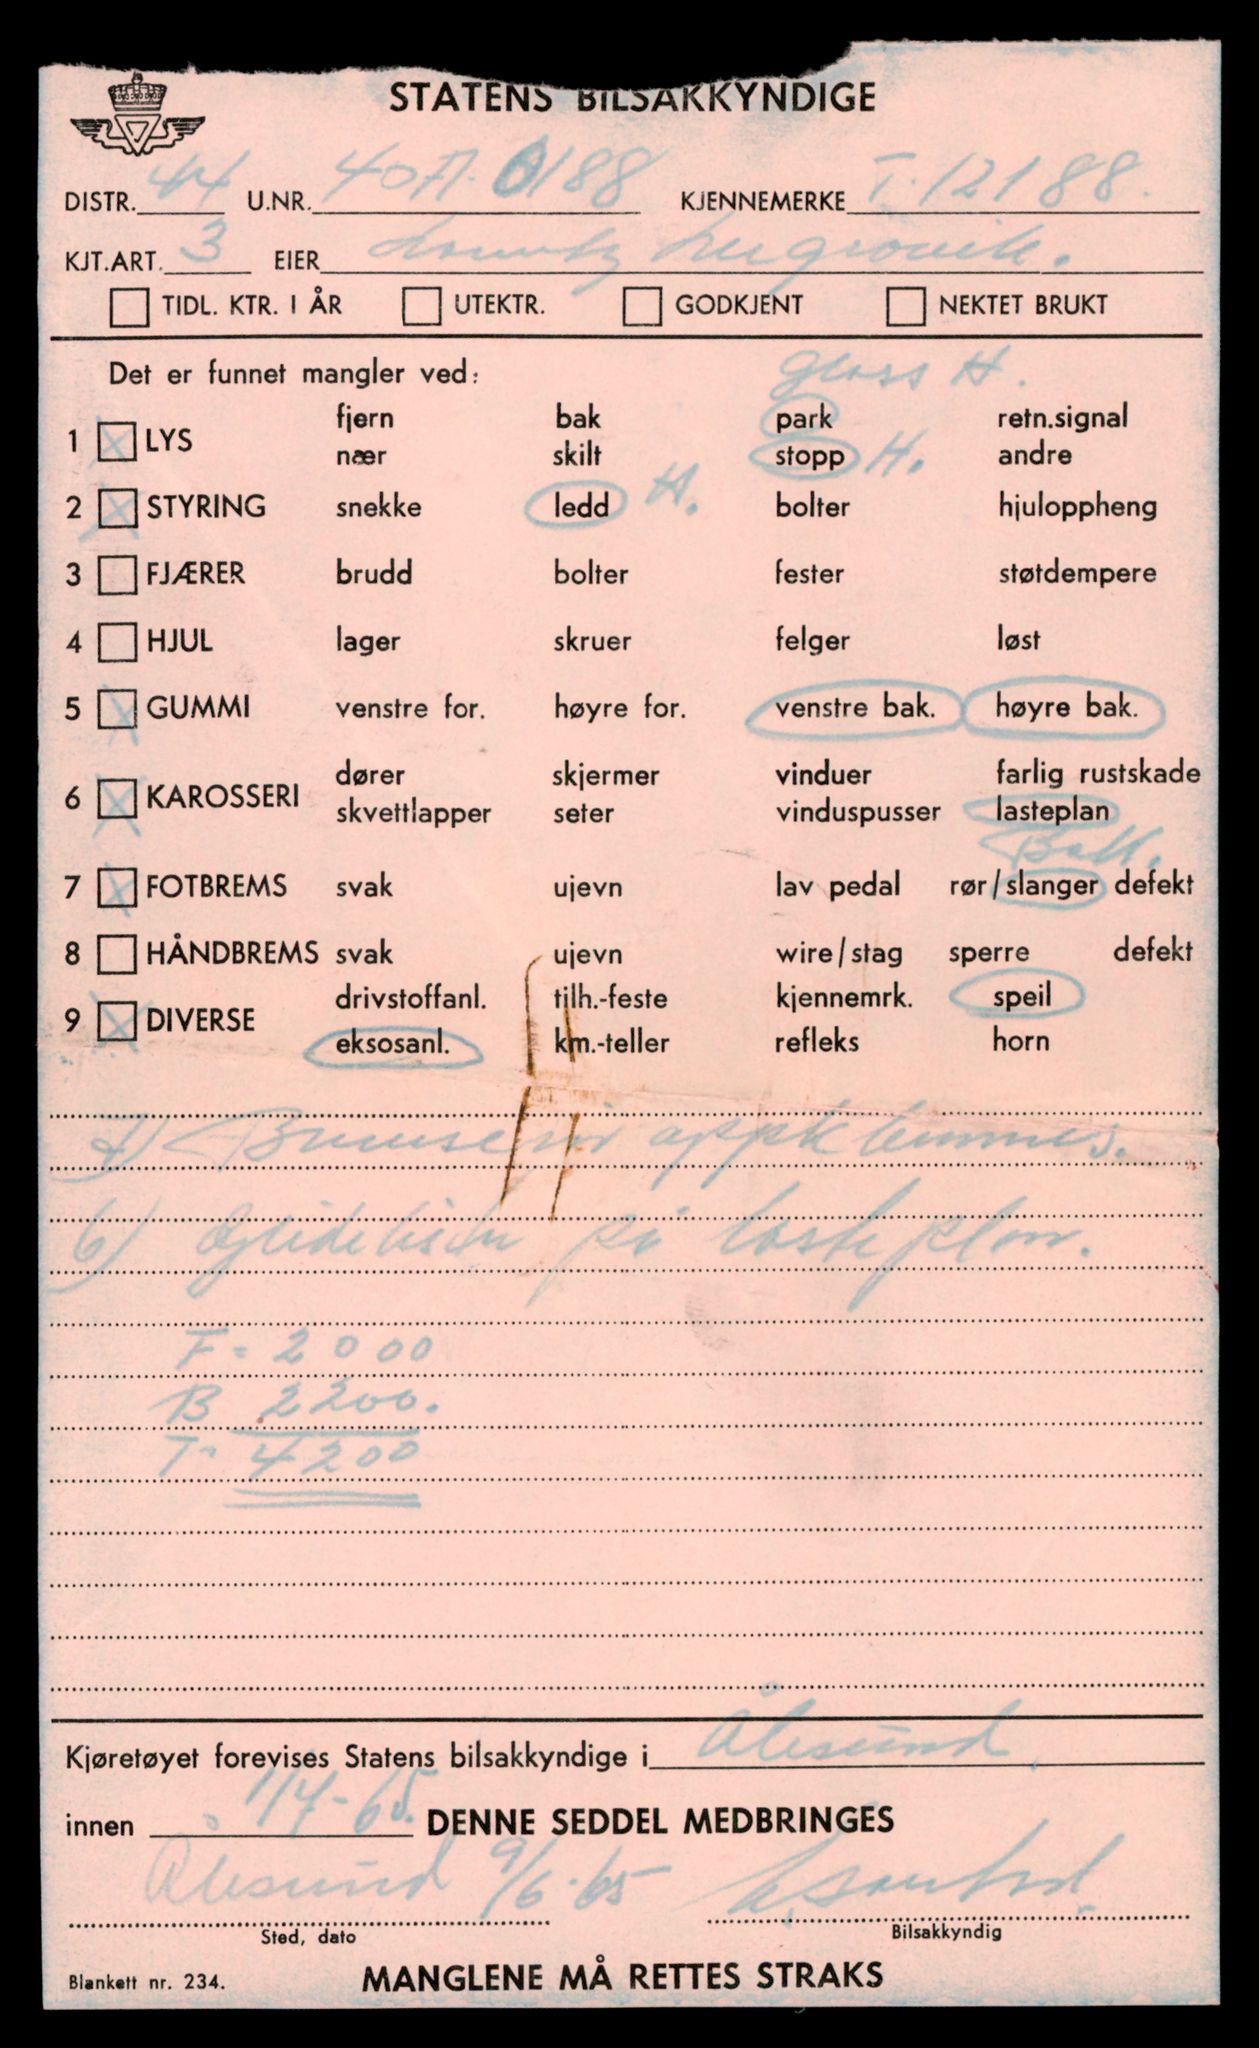 STATENS BILSAKKYNDIGE
DISTR. 44 U.NR. 40A. 0188 KJENNEMERKE T-12188.
KJT.ART. 3 EIER
TIDL. KTR. I ÅR UTEKTR. GODKJENT NEKTET BRUKT
Det er funnet mangler ved: glass H.
fjern bak park retn.signal
1 LYS
nær skilt stopp H. andre
2 STYRING snekke ledd H. bolter hjuloppheng
3 FJÆRER brudd bolter fester støtdempere
4 HJUL lager skruer felger løst
5 GUMMI venstre for. høyre for. venstre bak. høyre bak.
dører skjermer vinduer farlig rustskade
6 KAROSSERI
skvettlapper seter vinduspusser lasteplan
7 FOTBREMS svak ujevn lav pedal rør/slanger defekt
8 HÅNDBREMS svak ujevn wire/stag sperre defekt
drivstoffanl. tilh.-feste kjennemrk. speil
9 DIVERSE
eksosanl. km.-teller refleks horn
7) Bremserør oppklemmes.
6) på lasteplan.
F = 2000
B 2200.
T = 4200
Kjøretøyet forevises Statens bilsakkyndige i Ålesund
innen 1/7-65. DENNE SEDDEL MEDBRINGES
Ålesund 9/6-65
Sted, dato Bilsakkyndig
Blankett nr. 234. MANGLENE MÅ RETTES STRAKS